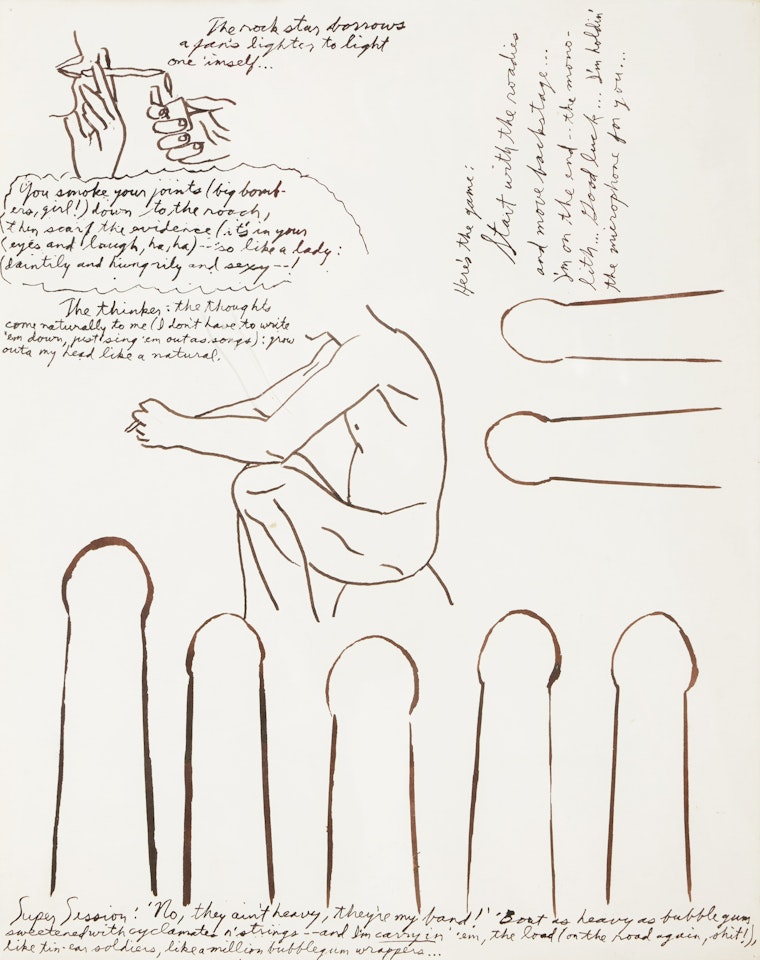 The rock star borrows
a fan's lighter to light
one 'imself...
You smoke your joints (big bomb-
ers, girl!) down to the roach,
then scarf the evidence (it's in your
eyes and laugh, ha, ha) -- so like a lady:
daintily and hungrily and sexy --!
The thinker: the thoughts
come naturally to me (I don't have to write
'em down, just sing 'em out as songs): grow
outa my head like a natural.
Here's the game:
Start with the roadies
and move backstage...
I'm on the end -- the mono-
lith... Good luck... I'm holdin'
the microphone for you...
Super Session: 'No, they ain't heavy, they're my band!' 'Bout as heavy as bubble gum
sweetened with cyclamates n' strings -- and I'm carryin' 'em, the load (on the road again, shit!),
like tin-ear soldiers, like a million bubblegum wrappers...